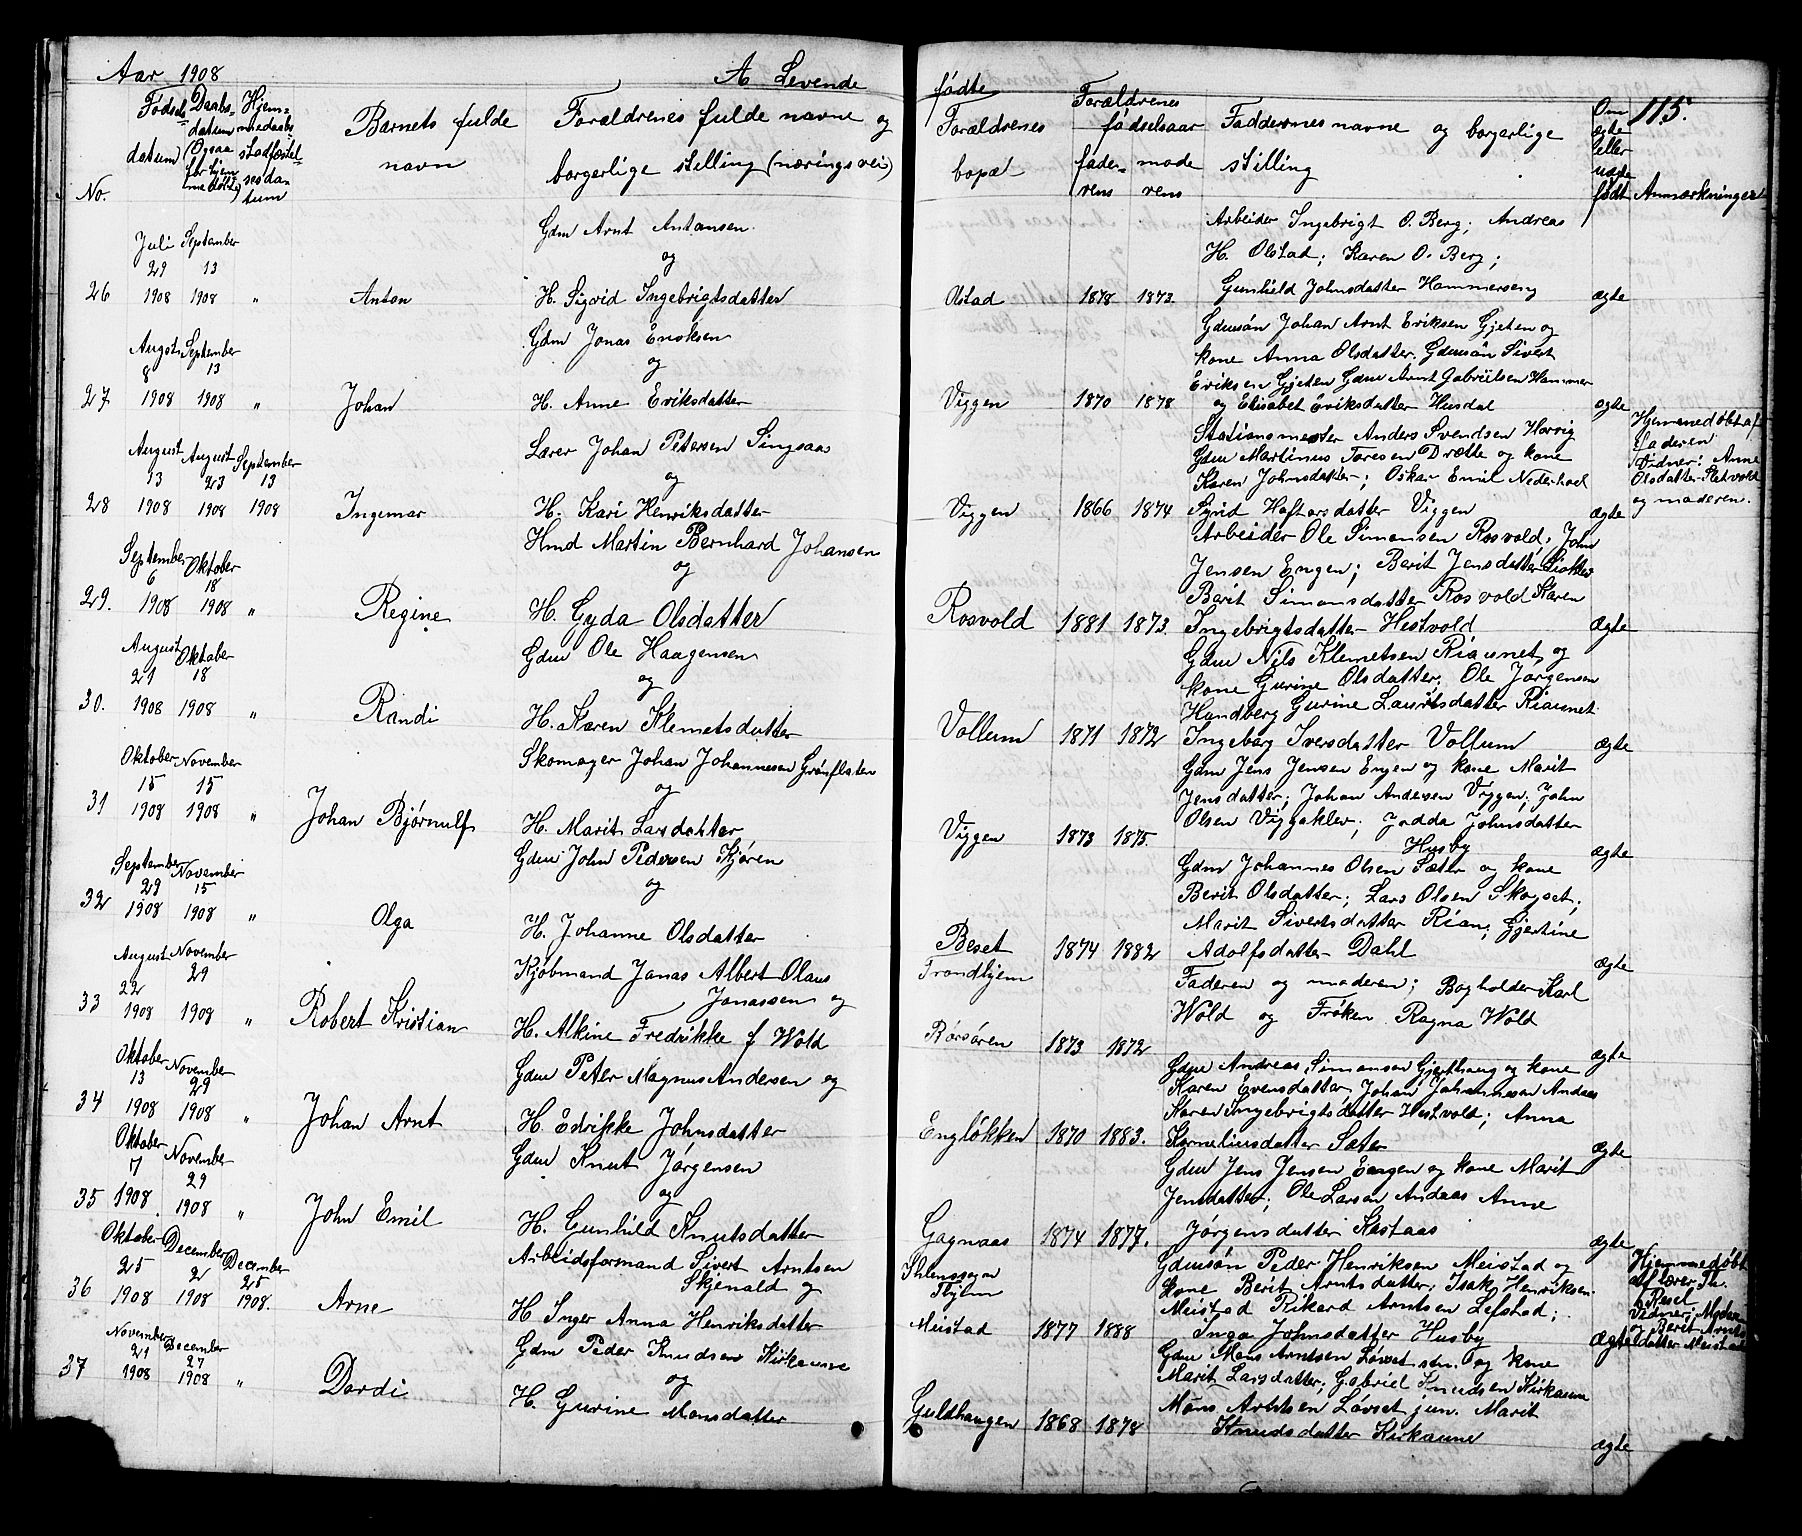 Aar 1908
A Levende
fødte
115.
No.
Fødsels datum
Daabs datum (Ogsaa for hjemmedøbte)
Hjemmedaabs stadfæstelsesdatum
Barnets fulde navn
Forældrenes fulde navne og borgerlige stilling (næringsvei)
Forældrenes bopæl
Forældrenes fødselsaar
faderens
moderens
Faddernes navne og borgerlige stilling
Om ægte eller uægte født
Anmærkninger
26
Juli 29 1908
September 13 1908
"
Anton
Gdm Arnt Antonsen
og
H. Sigrid Ingebrigtsdatter
Olstad
1878
1873
Arbeider Ingebrigt O. Berg; Andreas
H. Olstad; Karen O. Berg;
Gunhild Johnsdatter Hammerseng
ægte
27
Augst 8 1908
September 13 1908
"
Johan
Gdm Jonas Enoksen
og
H. Anne Eriksdatter
Viggen
1870
1878
Gdmsøn Johan Arnt Eriksen Gjeten og
kone Anna Olsdatter. Gdmsøn Sivert
Eriksen Gjeten Gdm Arnt Gabrielsen Hammer
og Elisabet Eriksdatter Husdal
ægte
28
August 13 1908
August 23 1908
September 13 1908
Ingemar
Lærer Johan Petersen Singsaas
og
H. Kari Henriksdatter
Viggen
1866
1874
Stationsmester Anders Svendsen Horrig
Gdm Martinus Toresen Drætte og kone
Karen Johnsdatter; Oskar Emil Nederhoel
Sigrid Haftorsdatter Viggen
ægte
Hjemmedøbt af
Faderen
Vidner: Anne
Olsdatter Sletvold
og moderen.
29.
September 6 1908
Oktober 18 1908
"
Regine
Hmd Martin Bernhard Johansen
og
H. Gyda Olsdatter
Rosvold
1881
1873.
Arbeider Ole Simonsen Rosvold, John
Jensen Engen; Berit Jensdatter
Berit Simonsdatter Rosvold Karen
Ingebrigtsdatter Hestvold
ægte
30.
August 21 1908
Oktober 18 1908
"
Randi
Gdm Ole Haagensen
og
H. Karen Klemetsdatter
Vollum
1871
1872
Gdm Nils Klemetsen Riaunet og
kone Gurine Olsdatter. Ole Jørgensen
Hundberg Gurine Lauritsdatter Riaunet
Ingeborg Iversdatter Vollum
ægte
31
Oktober 15 1908
November 15 1908
"
Johan Bjørnulf
Skomager Johan Johannesen Grønflaten
og
H. Marit Larsdatter
Viggen
1873
1875.
Gdm Jens Jensen Engen og kone Marit
Jensdatter; Johan Andersen Viggen; John
Olsen Viggaklev; Jodda Johnsdatter
Husby
ægte
32
September 29 1908
November 15 1908
"
Olga
Gdm John Pedersen Kjøren
og
H. Johanne Olsdatter
Beset
1874
1882
Gdm Johannes Olsen Sæter og kone
Berit Olsdatter; Lars Olsen Skogset;
Marit Sivertsdatter Rian; Gjertine
Adolfsdatter Dahl
ægte
33
August 22 1908
November 29 1908
"
Robert Kristian
Kjøbmand Jonas Albert Olaus
Jonassen og
H. Alkine Fredrikke f Wold
Trondhjem
Børsøren
1873
1872
Faderen og moderen; Bogholder Karl
Wold og Frøken Ragna Wold
ægte
34
Oktober 13 1908
November 29 1908
"
Johan Arnt
Gdm Peter Magnus Andersen og
H Edrikke Johnsdatter
Engløkken
1870
1883.
Gdm Andreas Simonsen Gjerthaug og kone
Karen Evensdatter, Johan Johannesen Andaas
Karen Ingebrigtsdatter Hestvold; Anna
Korneliusdatter Sæter
ægte
35
Oktober 7 1908.
November 29 1908
"
John Emil
Gdm Knut Jørgensen
og
H. Gunhild Knutsdatter
Gagnaas
1874
1877.
Gdm Jens Jensen Engen og kone Marit
Jensdatter; Ole Larsen Andaas Anne
Jørgensdatter Kastaas
ægte
36
Oktober 25 1908
December 2 1908
December 25 1908.
Arne
Arbeidsformand Sivert Arntsen
Skjenald og
H Inger Anna Henriksdatter
Ihlenssogn
Thjem
Meistad
1877
1888
Gdmsøn Peder Henriksen Meistad og
kone Berit Arntsdatter; Isak Henriksen
Meistad Rikard Arntsen Lefstad;
Inga Johnsdatter Husby
ægte
Hjemmedøbt
af lærer Th.
Resel
Vidner; Moderen
og Berit Arnts
datter Meistad
37
November 21 1908
December 27 1908
"
Dordi
Gdm Peder Knudsen Kirkaune
og
H. Gurine Monsdatter
Guldhaugen
1868
1878
Gdm Mons Arntsen Løvset sen. og kone
Marit Larsdatter; Gabriel Knudsen Kirkaune
Mons Arntsen Løvset jun. Marit
Knudsdatter Kirkaune
ægte